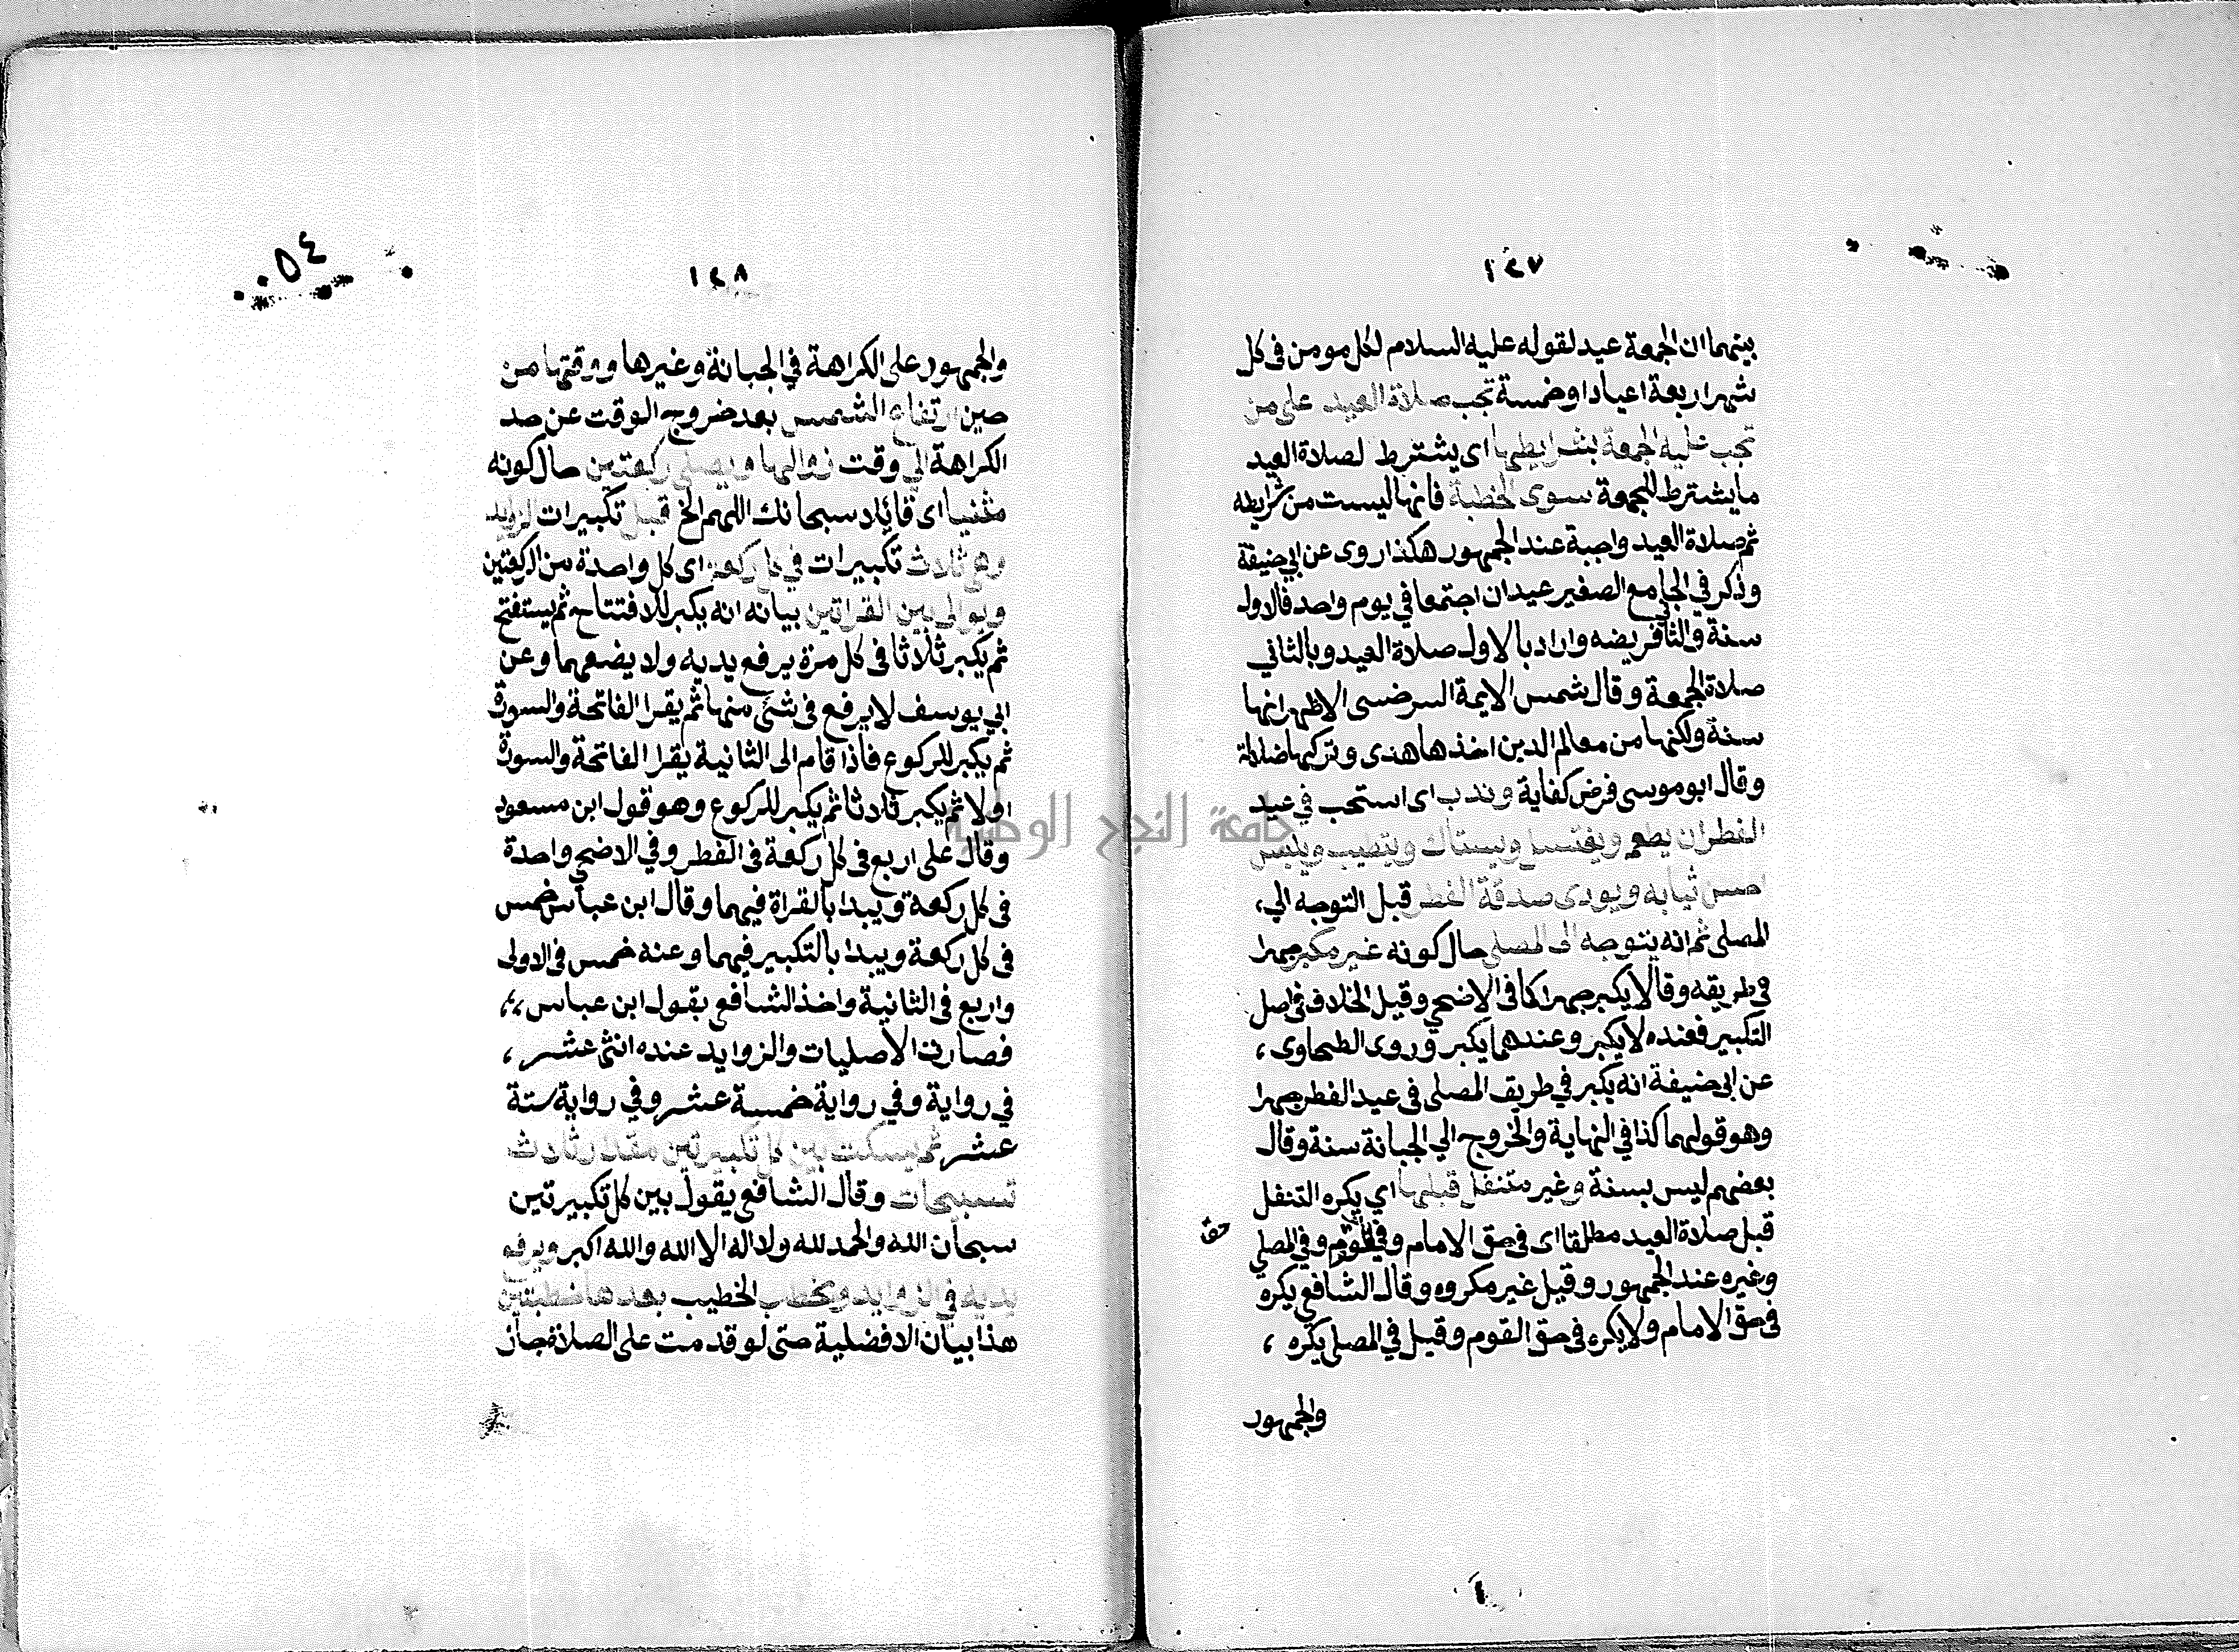 ١٤٧
بينهما ان الجمعة عيد لقوله عليه السلام لكل مومن فى كل
شهر اربعة اعياد او خمسة تجب صلاة العيد على من
تجب عليه الجمعة بشرايطها اى يشترط لصلاة العيد
ما يشترط للجمعة سوى الخطبة فانها ليست من شرايطه
ثم صلاة العيد واجبة عند الجمهور هكذا روى عن ابي حنيفة
وذكر في الجامع الصغير عيدان اجتمعا في يوم واحد فالاول
سنة والثانى فريضه واراد بالاول صلاة العيد وبالثاني
صلاة الجمعة وقال شمس الايمة السرخسى الاظهر انها
سنة ولكنها من معالم الدين اخذها هدى وتركها ضلالة
وقال ابو موسى فرض كفاية وندب اى استحب في عيد
الفطر ان يطعم ويغتسل ويستاك ويتطيب ويلبس
احسن ثيابه ويودى صدقة الفطر قبل التوجه الي
المصلى ثم انه يتوجه الى المصلى حال كونه غير مكبر جهرا
في طريقه وقالا يكبر جهرا كما فى الاضحي وقيل الخلاف فى اصل
التكبير فعنده لا يكبر وعندهما يكبر وروى الطحاوى ،
عن ابى حنيفة انه يكبر في طريق المصلى فى عيد الفطر جهرا
وهو قولهما كذا في النهاية والخروج الي الجبانة سنة وقال
بعضهم ليس بسنة وغير متنفل قبلها اي يكره التنفل
قبل صلاة العيد مطلقا اى فى حق الامام وفي القوم وفي المصلي
حق
وغيره عند الجمهور وقيل غير مكروه وقال الشافعي يكره
فى حق الامام ولا يكره فى حق القوم وقيل في المصلى يكره ،
والجمهور
٠٠٥٤
١٤٨
والجمهور على الكراهة في الجبانة وغيرها ووقتها من
حين ارتفاع الشمس بعد خروج الوقت عن حد
الكراهة الي وقت زوالها ويصلى ركعتين حال كونه
مثنيا اى قائلا سبحانك اللهم الخ قبل تكبيرات الزوايد
وهى ثلاث تكبيرات في كل ركعة اى كل واحدة من الركعتين
ويوالى بين القراتين بيانه انه يكبر للافتتاح ثم يستفتح
ثم يكبر ثلاثا فى كل مرة يرفع يديه ولا يضعهما وعن
ابي يوسف لا يرفع فى شئ منها ثم يقرا الفاتحة والسورة
ثم يكبر للركوع فاذا قام الى الثانية يقرا الفاتحة والسورة
اولا ثم يكبر ثلاثا ثم يكبر للركوع وهو قول ابن مسعود
وقال على اربع فى كل ركعة فى الفطر وفي الاضحي واحدة
فى كل ركعة ويبدا بالقراة فيهما وقال ابن عباس خمس
فى كل ركعة ويبدا بالتكبير فيهما وعنه خمس فى الاولى
واربع فى الثانية واخذ الشافعي بقول ابن عباس ،،
فصارت الاصليات والزوايد عنده اثنى عشر ،
في رواية وفي رواية خمسة عشر وفي رواية ستة
عشر ثم يسكت بين كل تكبيرتين مقدار ثلاث
تسبيحات وقال الشافعي يقول بين كل تكبيرتين
سبحان الله والحمد لله ولا اله الا الله والله اكبر ويرفع
يديه في الزوايد ويخطب الخطيب بعدها خطبتين
هذا بيان الافضلية حتى لو قدمت على الصلاة جاز
جامعة النجاح الوطنية